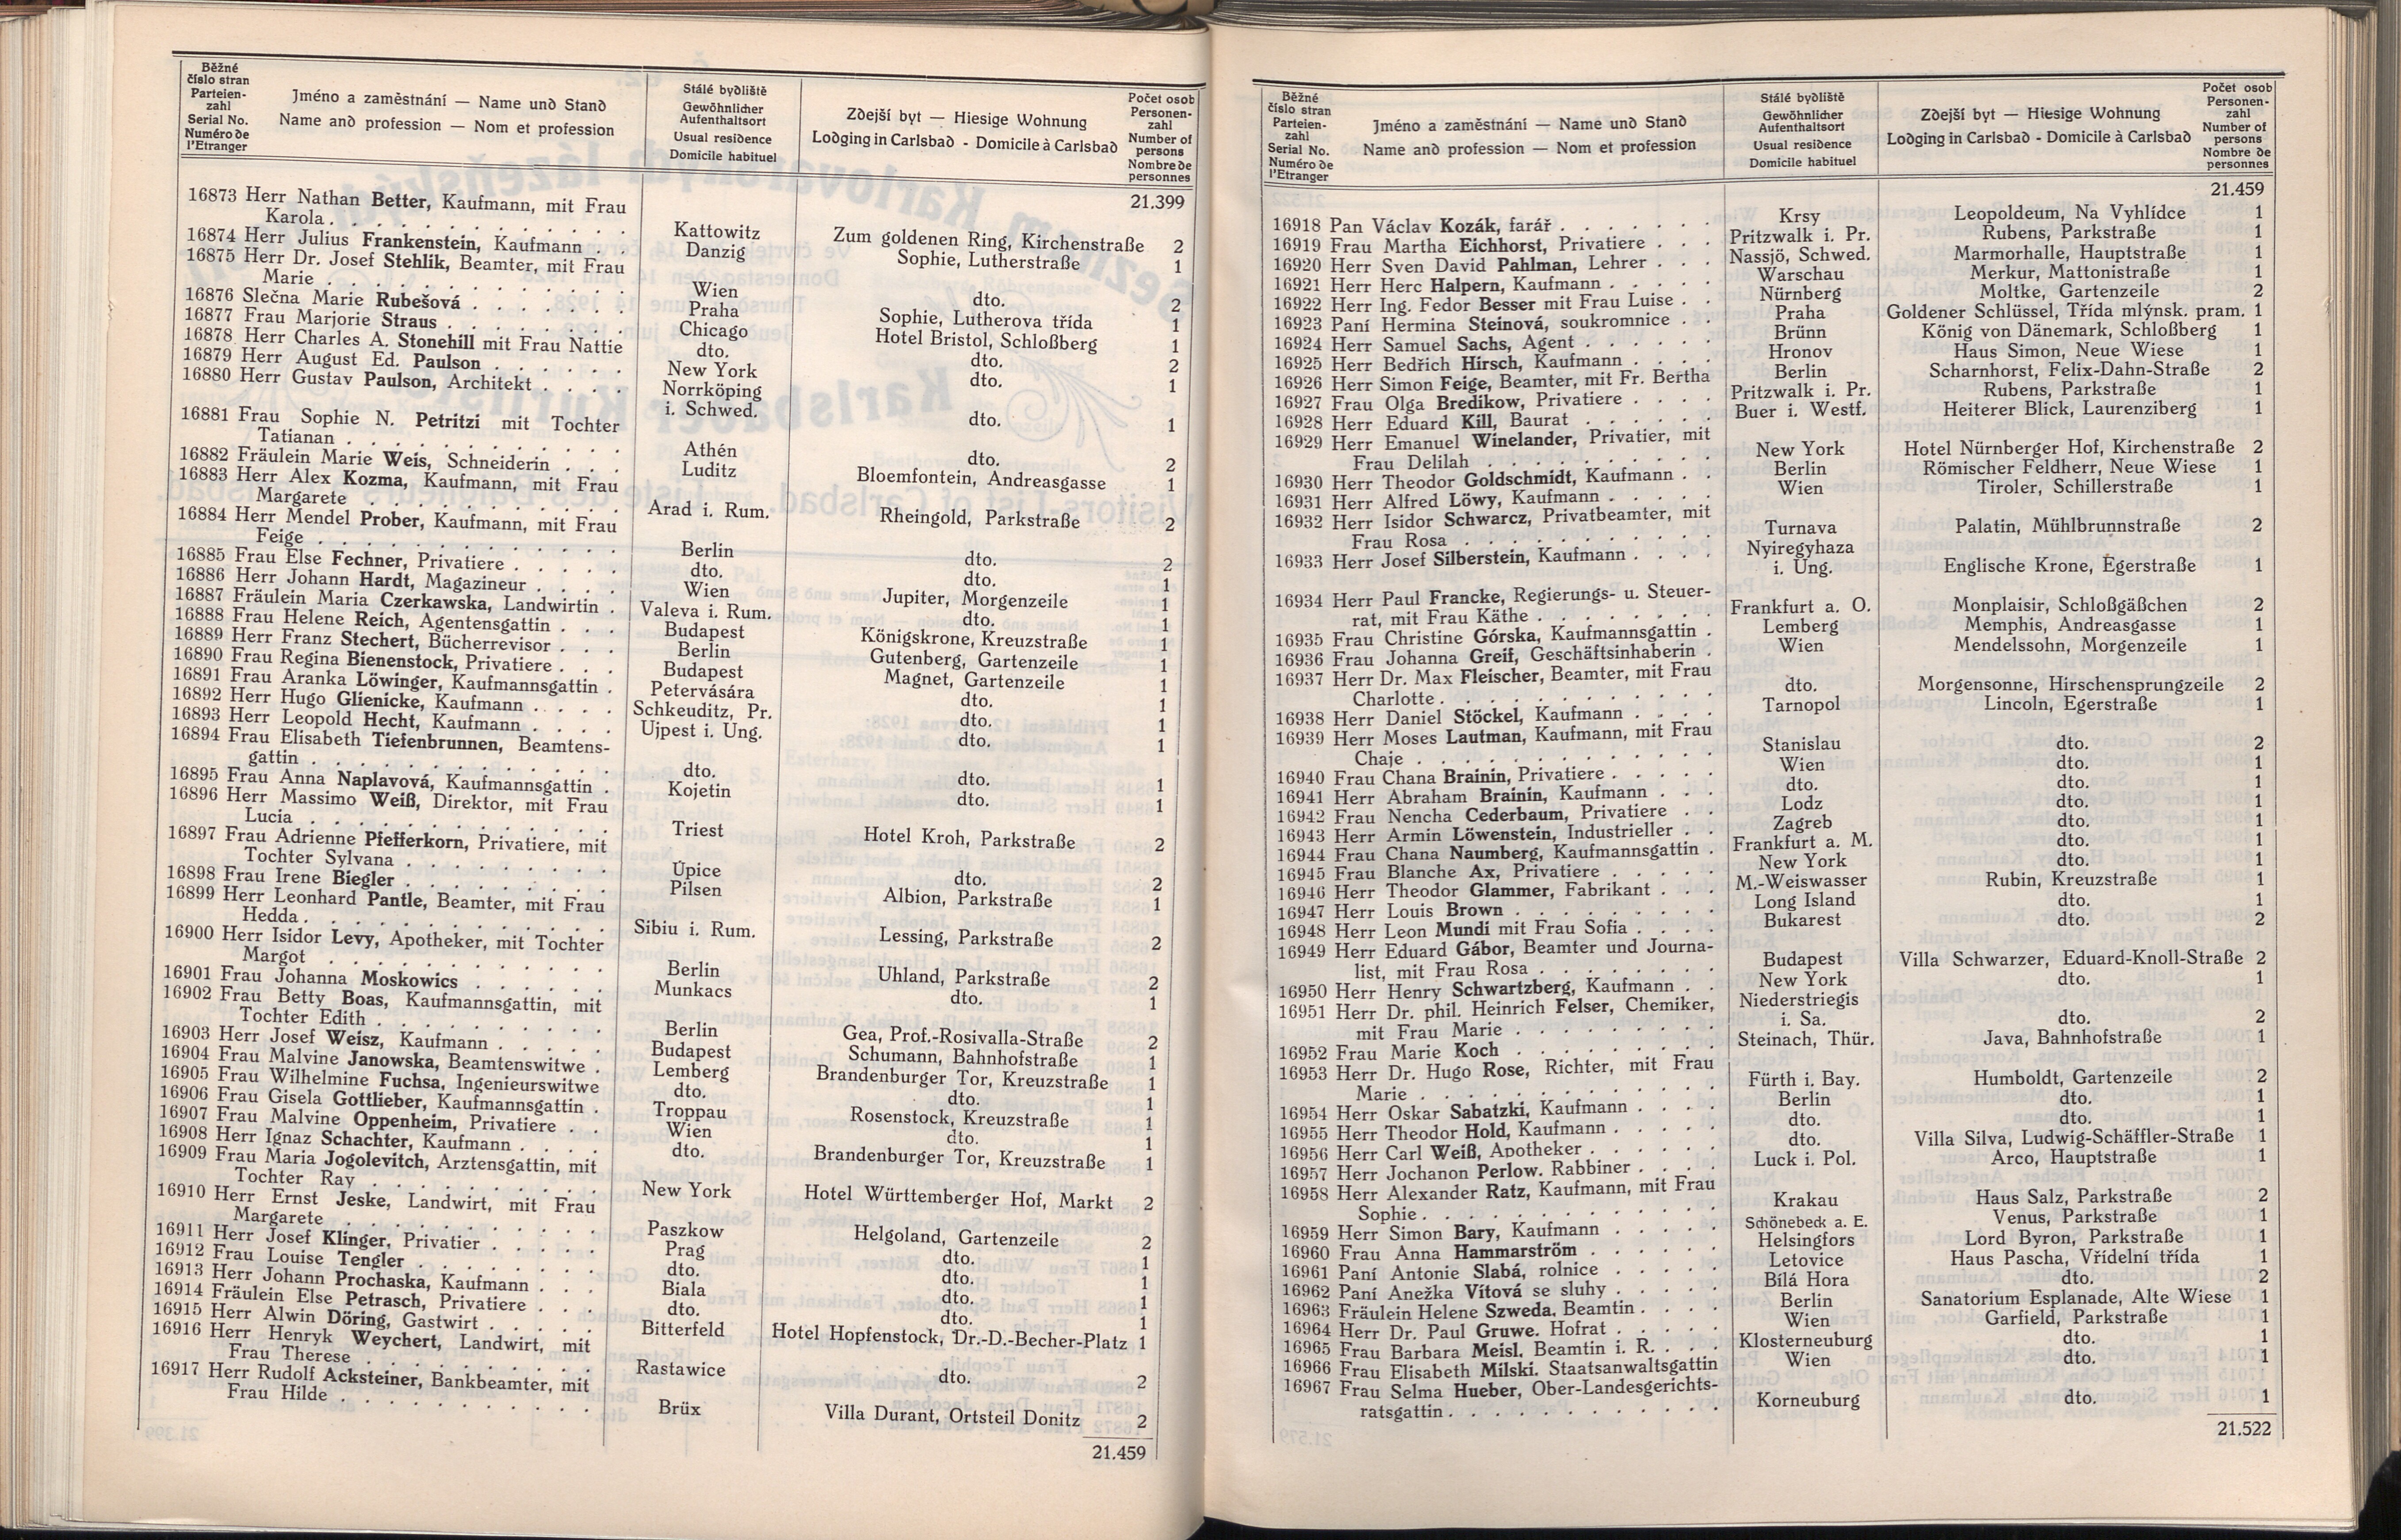 Běžné
číslo stran
Parteien-
zahl
Serial No.
Numéro de
l'Etranger
Jméno a zaměstnání — Name und Stand
Name and profession — Nom et profession
Stálé bydliště
Gewöhnlicher
Aufenthaltsort
Usual residence
Domicile habituel
Zdejší byt — Hiesige Wohnung
Lodging in Carlsbad - Domicile à Carlsbad
Počet osob
Personen-
zahl
Number of
persons
Nombre de
personnes
21.399
16873 Herr Nathan Better, Kaufmann, mit Frau
Karola . . . Kattowitz Zum goldenen Ring, Kirchenstraße 2
16874 Herr Julius Frankenstein, Kaufmann . . Danzig Sophie, Lutherstraße 1
16875 Herr Dr. Josef Stehlik, Beamter, mit Frau
Marie . . . Wien dto. 2
16876 Slečna Marie Rubešová . . . Praha Sophie, Lutherova třída 1
16877 Frau Marjorie Straus . . . Chicago Hotel Bristol, Schloßberg 1
16878 Herr Charles A. Stonehill mit Frau Nattie dto. dto. 2
16879 Herr August Ed. Paulson . . . New York dto. 1
16880 Herr Gustav Paulson, Architekt . . . Norrköping
i. Schwed. dto. 1
16881 Frau Sophie N. Petritzi mit Tochter
Tatianan . . . Athén dto. 2
16882 Fräulein Marie Weis, Schneiderin . . . Luditz Bloemfontein, Andreasgasse 1
16883 Herr Alex Kozma, Kaufmann, mit Frau
Margarete . . . Arad i. Rum. Rheingold, Parkstraße 2
16884 Herr Mendel Prober, Kaufmann, mit Frau
Feige . . . Berlin dto. 2
16885 Frau Else Fechner, Privatiere . . . dto. dto. 1
16886 Herr Johann Hardt, Magazineur . . . Wien Jupiter, Morgenzeile 1
16887 Fräulein Maria Czerkawska, Landwirtin . Valeva i. Rum. dto. 1
16888 Frau Helene Reich, Agentensgattin . . . Budapest Königskrone, Kreuzstraße 1
16889 Herr Franz Stechert, Bücherrevisor . . . Berlin Gutenberg, Gartenzeile 1
16890 Frau Regina Bienenstock, Privatiere . . . Budapest Magnet, Gartenzeile 1
16891 Frau Aranka Löwinger, Kaufmannsgattin . Petervására dto. 1
16892 Herr Hugo Glienicke, Kaufmann . . . Schkeuditz, Pr. dto. 1
16893 Herr Leopold Hecht, Kaufmann . . . Ujpest i. Ung. dto. 1
16894 Frau Elisabeth Tiefenbrunnen, Beamtens-
gattin . . . dto. dto. 1
16895 Frau Anna Naplavová, Kaufmannsgattin . Kojetin dto. 1
16896 Herr Massimo Weiß, Direktor, mit Frau
Lucia . . . Triest Hotel Kroh, Parkstraße 2
16897 Frau Adrienne Pfefferkorn, Privatiere, mit
Tochter Sylvana . . . Úpice dto. 2
16898 Frau Irene Biegler . . . Pilsen Albion, Parkstraße 1
16899 Herr Leonhard Pantle, Beamter, mit Frau
Hedda . . . Sibiu i. Rum. Lessing, Parkstraße 2
16900 Herr Isidor Levy, Apotheker, mit Tochter
Margot . . . Berlin Uhland, Parkstraße 2
16901 Frau Johanna Moskowics . . . Munkacs dto. 1
16902 Frau Betty Boas, Kaufmannsgattin, mit
Tochter Edith . . . Berlin Gea, Prof.-Rosivalla-Straße 2
16903 Herr Josef Weisz, Kaufmann . . . Budapest Schumann, Bahnhofstraße 1
16904 Frau Malvine Janowska, Beamtenswitwe . Lemberg Brandenburger Tor, Kreuzstraße 1
16905 Frau Wilhelmine Fuchsa, Ingenieurswitwe dto. dto. 1
16906 Frau Gisela Gottlieber, Kaufmannsgattin . Troppau Rosenstock, Kreuzstraße 1
16907 Frau Malvine Oppenheim, Privatiere . . Wien dto. 1
16908 Herr Ignaz Schachter, Kaufmann . . . dto. Brandenburger Tor, Kreuzstraße 1
16909 Frau Maria Jogolevitch, Arztensgattin, mit
Tochter Ray . . . New York Hotel Württemberger Hof, Markt 2
16910 Herr Ernst Jeske, Landwirt, mit Frau
Margarete . . . Paszkow Helgoland, Gartenzeile 2
16911 Herr Josef Klinger, Privatier . . . Prag dto. 1
16912 Frau Louise Tengler . . . dto. dto. 1
16913 Herr Johann Prochaska, Kaufmann . . . Biala dto. 1
16914 Fräulein Else Petrasch, Privatiere . . . dto. dto. 1
16915 Herr Alwin Döring, Gastwirt . . . Bitterfeld Hotel Hopfenstock, Dr.-D.-Becher-Platz 1
16916 Herr Henryk Weychert, Landwirt, mit
Frau Therese . . . Rastawice dto. 2
16917 Herr Rudolf Acksteiner, Bankbeamter, mit
Frau Hilde . . . Brüx Villa Durant, Ortsteil Donitz 2
21.459
Běžné
číslo stran
Parteien-
zahl
Serial No.
Numéro de
l'Etranger
Jméno a zaměstnání — Name und Stand
Name and profession — Nom et profession
Stálé bydliště
Gewöhnlicher
Aufenthaltsort
Usual residence
Domicile habituel
Zdejší byt — Hiesige Wohnung
Lodging in Carlsbad - Domicile à Carlsbad
Počet osob
Personen-
zahl
Number of
persons
Nombre de
personnes
21.459
16918 Pan Václav Kozák, farář . . . Krsy Leopoldeum, Na Vyhlídce 1
16919 Frau Martha Eichhorst, Privatiere . . . Pritzwalk i. Pr. Rubens, Parkstraße 1
16920 Herr Sven David Pahlman, Lehrer . . . Nassjö, Schwed. Marmorhalle, Hauptstraße 1
16921 Herr Herc Halpern, Kaufmann . . . Warschau Merkur, Mattonistraße 1
16922 Herr Ing. Fedor Besser mit Frau Luise . . Nürnberg Moltke, Gartenzeile 2
16923 Paní Hermina Steinová, soukromnice . . Praha Goldener Schlüssel, Třída mlýnsk. pram. 1
16924 Herr Samuel Sachs, Agent . . . Brünn König von Dänemark, Schloßberg 1
16925 Herr Bedřich Hirsch, Kaufmann . . . Hronov Haus Simon, Neue Wiese 1
16926 Herr Simon Feige, Beamter, mit Fr. Bertha Berlin Scharnhorst, Felix-Dahn-Straße 2
16927 Frau Olga Bredikow, Privatiere . . . Pritzwalk i. Pr. Rubens, Parkstraße 1
16928 Herr Eduard Kill, Baurat . . . Buer i. Westf. Heiterer Blick, Laurenziberg 1
16929 Herr Emanuel Winelander, Privatier, mit
Frau Delilah . . . New York Hotel Nürnberger Hof, Kirchenstraße 2
16930 Herr Theodor Goldschmidt, Kaufmann . . Berlin Römischer Feldherr, Neue Wiese 1
16931 Herr Alfred Löwy, Kaufmann . . . Wien Tiroler, Schillerstraße 1
16932 Herr Isidor Schwarcz, Privatbeamter, mit
Frau Rosa . . . Turnava Palatin, Mühlbrunnstraße 2
16933 Herr Josef Silberstein, Kaufmann . . . Nyiregyhaza
i. Ung. Englische Krone, Egerstraße 1
16934 Herr Paul Francke, Regierungs- u. Steuer-
rat, mit Frau Käthe . . . Frankfurt a. O. Monplaisir, Schloßgäßchen 2
16935 Frau Christine Górska, Kaufmannsgattin . Lemberg Memphis, Andreasgasse 1
16936 Frau Johanna Greif, Geschäftsinhaberin . Wien Mendelssohn, Morgenzeile 1
16937 Herr Dr. Max Fleischer, Beamter, mit Frau
Charlotte . . . dto. Morgensonne, Hirschensprungzeile 2
16938 Herr Daniel Stöckel, Kaufmann . . . Tarnopol Lincoln, Egerstraße 1
16939 Herr Moses Lautman, Kaufmann, mit Frau
Chaje . . . Stanislau dto. 2
16940 Frau Chana Brainin, Privatiere . . . Wien dto. 1
16941 Herr Abraham Brainin, Kaufmann . . . dto. dto. 1
16942 Frau Nencha Cederbaum, Privatiere . . Lodz dto. 1
16943 Herr Armin Löwenstein, Industrieller . . Zagreb dto. 1
16944 Frau Chana Naumberg, Kaufmannsgattin . Frankfurt a. M. dto. 1
16945 Frau Blanche Ax, Privatiere . . . New York dto. 1
16946 Herr Theodor Glammer, Fabrikant . . . M.-Weiswasser Rubin, Kreuzstraße 1
16947 Herr Louis Brown . . . Long Island dto. 1
16948 Herr Leon Mundi mit Frau Sofia . . . Bukarest dto. 2
16949 Herr Eduard Gábor, Beamter und Journa-
list, mit Frau Rosa . . . Budapest Villa Schwarzer, Eduard-Knoll-Straße 2
16950 Herr Henry Schwartzberg, Kaufmann . . New York dto. 1
16951 Herr Dr. phil. Heinrich Felser, Chemiker, Niederstriegis
mit Frau Marie . . . i. Sa. dto. 2
16952 Frau Marie Koch . . . Steinach, Thür. Java, Bahnhofstraße 1
16953 Herr Dr. Hugo Rose, Richter, mit Frau
Marie . . . Fürth i. Bay. Humboldt, Gartenzeile 2
16954 Herr Oskar Sabatzki, Kaufmann . . . Berlin dto. 1
16955 Herr Theodor Hold, Kaufmann . . . dto. dto. 1
16956 Herr Carl Weiß, Apotheker . . . dto. Villa Silva, Ludwig-Schäffler-Straße 1
16957 Herr Jochanon Perlow. Rabbiner . . . Luck i. Pol. Arco, Hauptstraße 1
16958 Herr Alexander Ratz, Kaufmann, mit Frau
Sophie . . . Krakau Haus Salz, Parkstraße 2
16959 Herr Simon Bary, Kaufmann . . . Schönebeck a. E. Venus, Parkstraße 1
16960 Frau Anna Hammarström . . . Helsingfors Lord Byron, Parkstraße 1
16961 Paní Antonie Slabá, rolnice . . . Letovice Haus Pascha, Vřídelní třída 1
16962 Paní Anežka Vítová se sluhy . . . Bílá Hora dto. 2
16963 Fräulein Helene Szweda. Beamtin . . . Berlin Sanatorium Esplanade, Alte Wiese 1
16964 Herr Dr. Paul Gruwe. Hofrat . . . Wien Garfield, Parkstraße 1
16965 Frau Barbara Meisl. Beamtin i. R. . . . Klosterneuburg dto. 1
16966 Frau Elisabeth Milski. Staatsanwaltsgattin Wien dto. 1
16967 Frau Selma Hueber, Ober-Landesgerichts-
ratsgattin . . . Korneuburg dto. 1
21.522